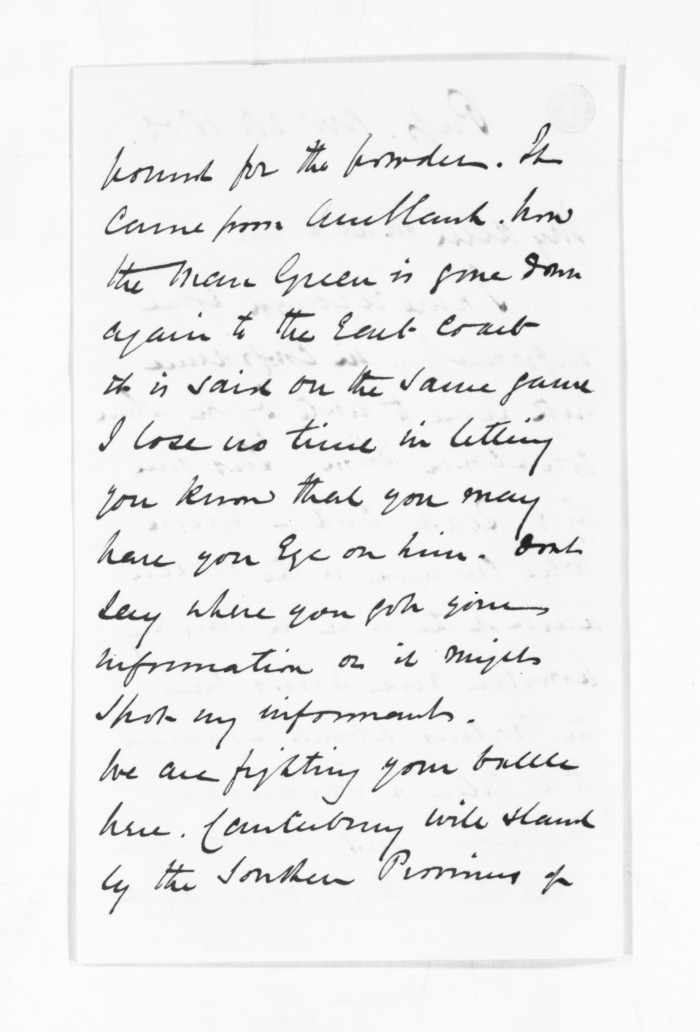 pound for the powder. It
came from Auckland. Now
the Man Green is gone down
again to the East Coast
it is said on the same game
I lose no time in letting
you know that you may
have your Eye on him. Dont
say where you got your
information or it might
spot my informants.
We are fighting your battle
here. Canterbury will stand
by the Southern Provinces if